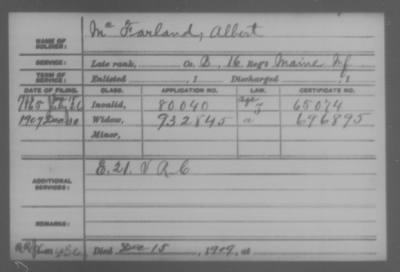 NAME OF SOLDIER: Mc Farland, Albert
SERVICE: Late rank, Co. D, 16 Reg't Maine Inf
TERM OF SERVICE: Enlisted , 1 Discharged , 1
DATE OF FILING. CLASS. APPLICATION NO. LAW. CERTIFICATE NO.
1865 Invalid, 80040 65074
1909 Dec Widow, 932845 a 696895
Minor,
ADDITIONAL SERVICES: E. 21. V R C
REMARKS:
Died Dec 15, 1909, at